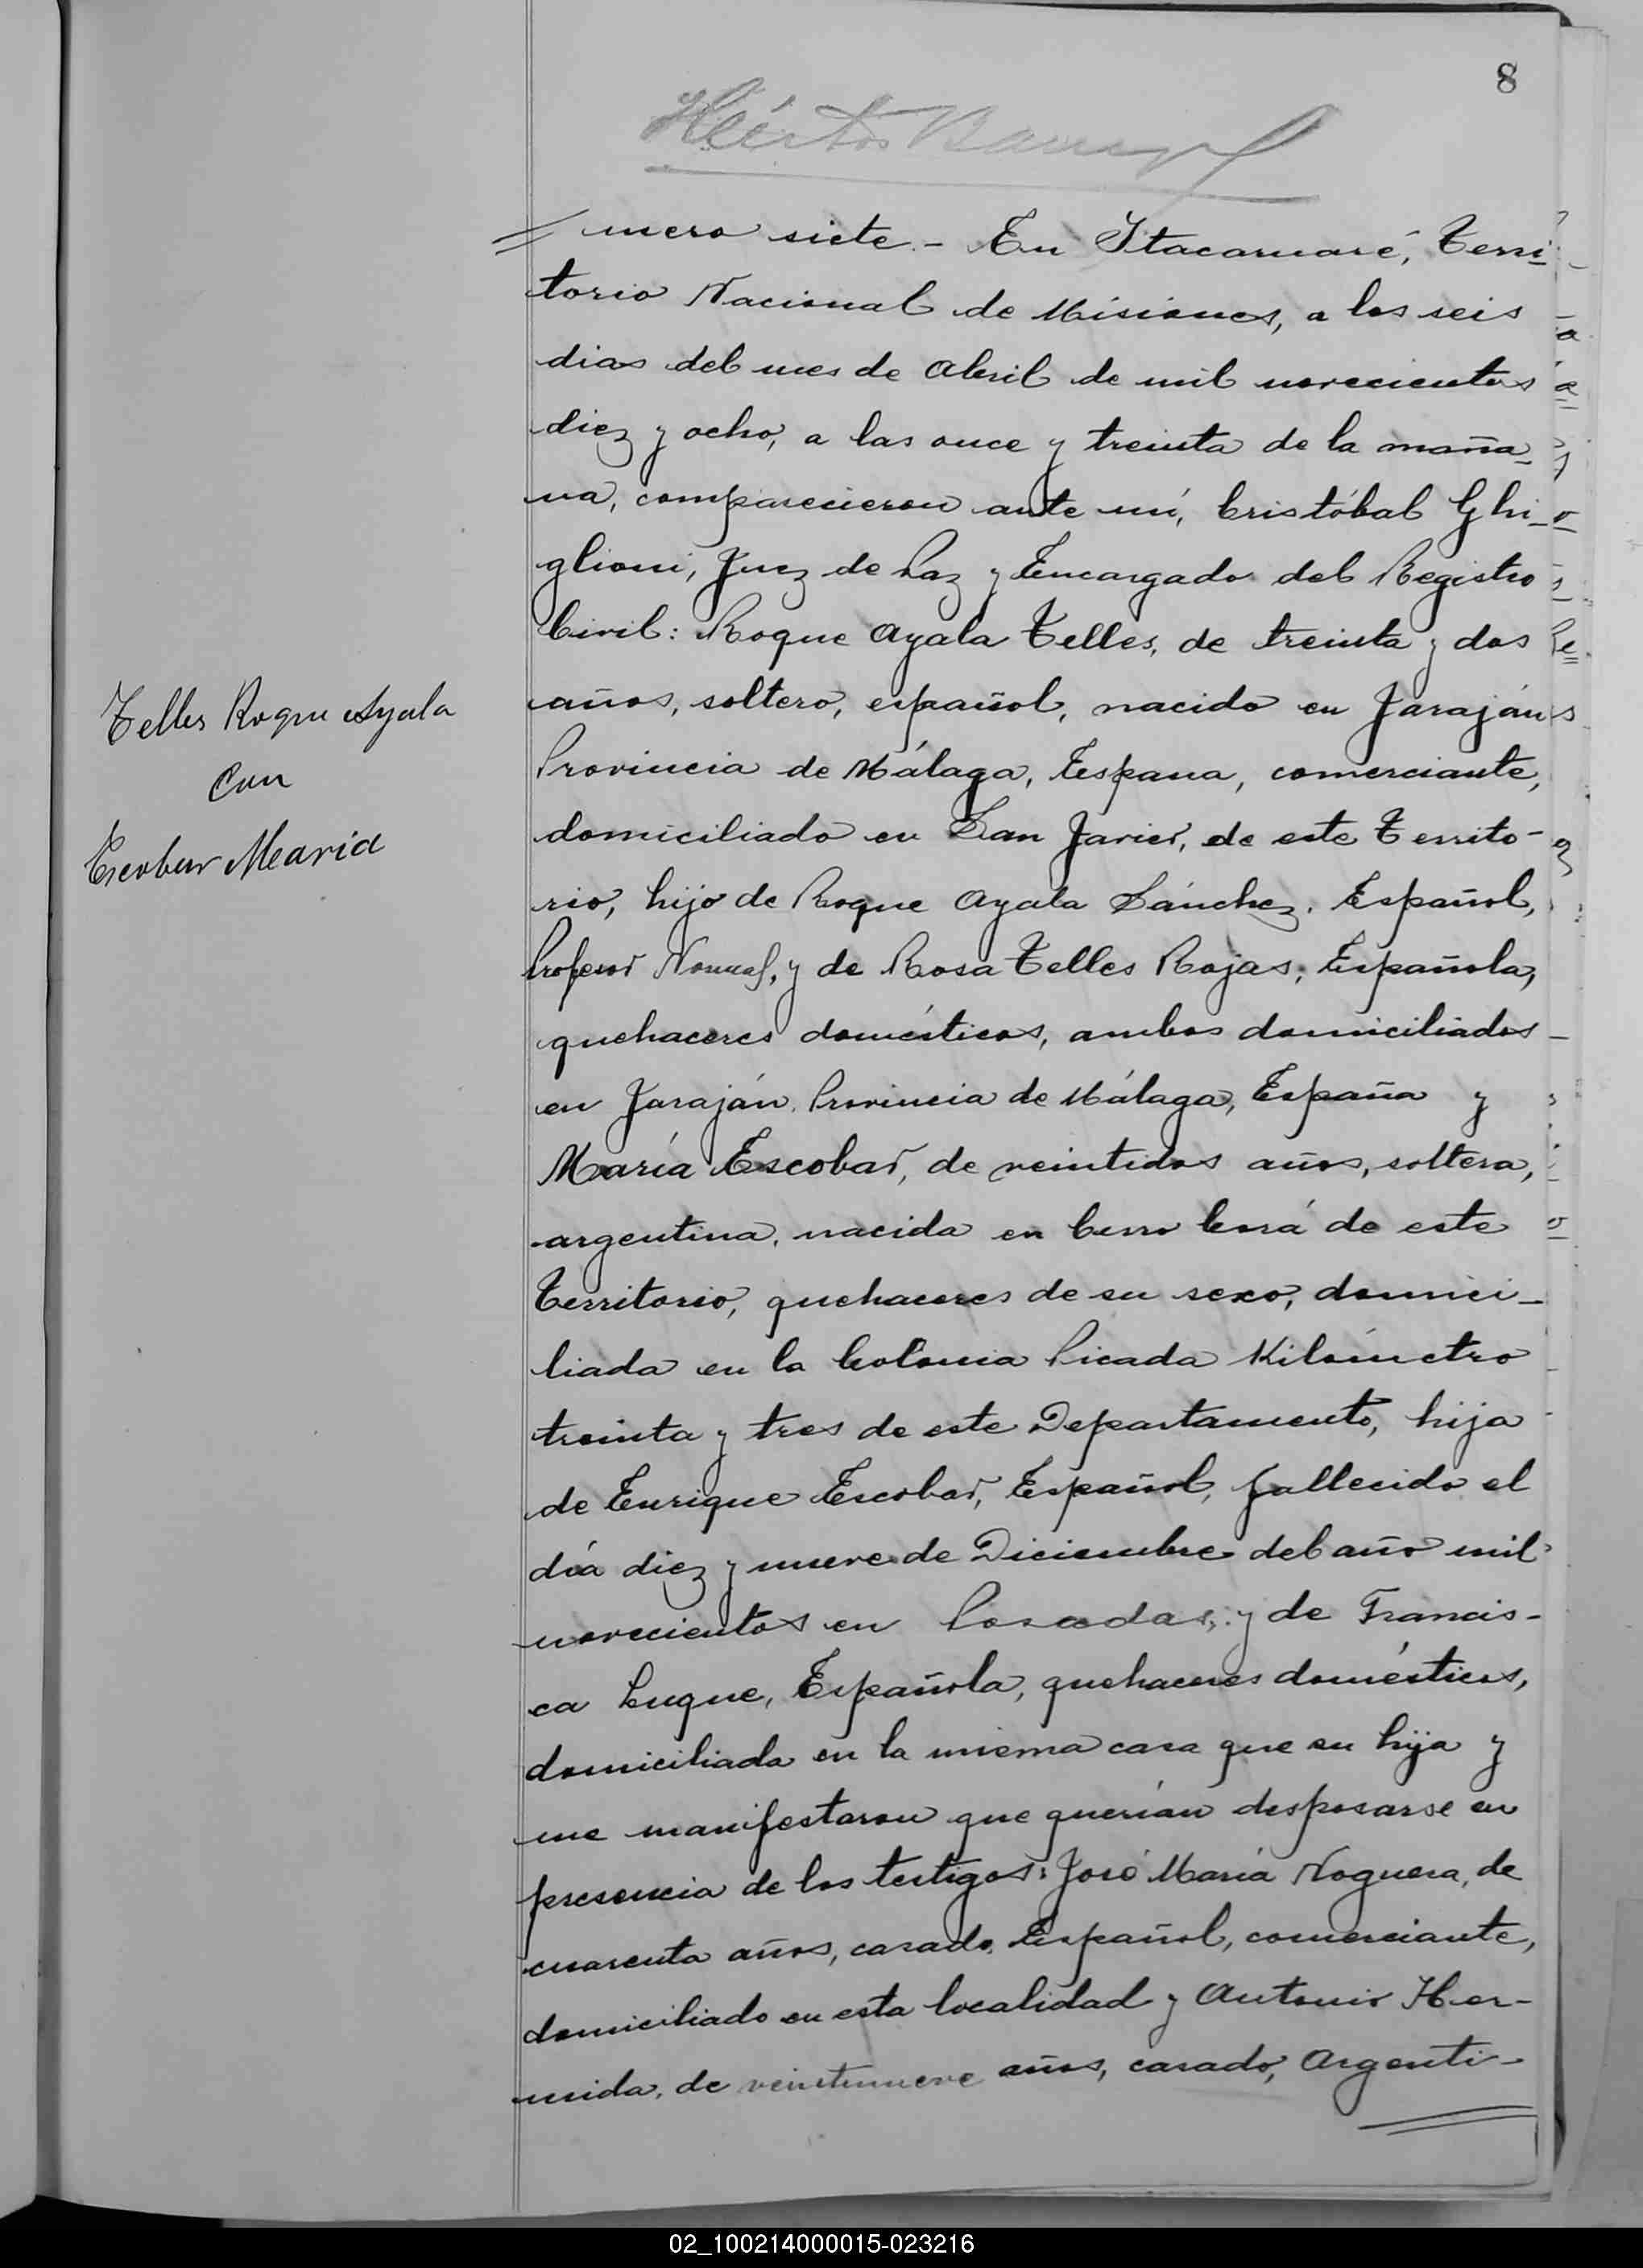 8
Héctor
mero siete.- En Itacaruaré, Terri-
torio Nacional de Misiones, a los seis
dias del mes de Abril de mil novecientos
diez y ocho, a las once y treinta de la maña-
na, comparecieron ante mí, Cristóbal Ghi-
glioni, Juez de Paz y Encargado del Registro
Civil: Roque Ayala Telles, de treinta y dos
años, soltero, español, nacido en Faraján
Provincia de Málaga, Espana, comerciante,
domiciliado en San Javier, de este Territo-
rio, hijo de Roque Ayala Sánchez, Español,
Profesor Normal, y de Rosa Telles Rojas, Española,
quehaceres domésticos, ambos domiciliados
en Faraján, Provincia de Málaga, España y
María Escobar, de veintidos años, soltera,
argentina, nacida en Cerro Corá de este
Territorio, quehaceres de su sexo, domici-
liada en la Colonia Picada Kilómetro
treinta y tres de este Departamento, hija
de Enrique Escobar, Español, fallecido el
día diez y nueve de Diciembre del año mil
novecientos en Posadas; y de Francis-
ca Luque, Española, quehaceres domésticos,
domiciliada en la misma casa que su hija y
me manifestaron que querían desposarse en
presencia de los testigos: José María Noguera, de
cuarenta años, casado, Español, comerciante,
domiciliado en esta localidad y Antonio Her-
mida, de veintinueve años, casado, Argenti-
Telles Roque Ayala
Con
Escobar Maria
02_100214000015-023216